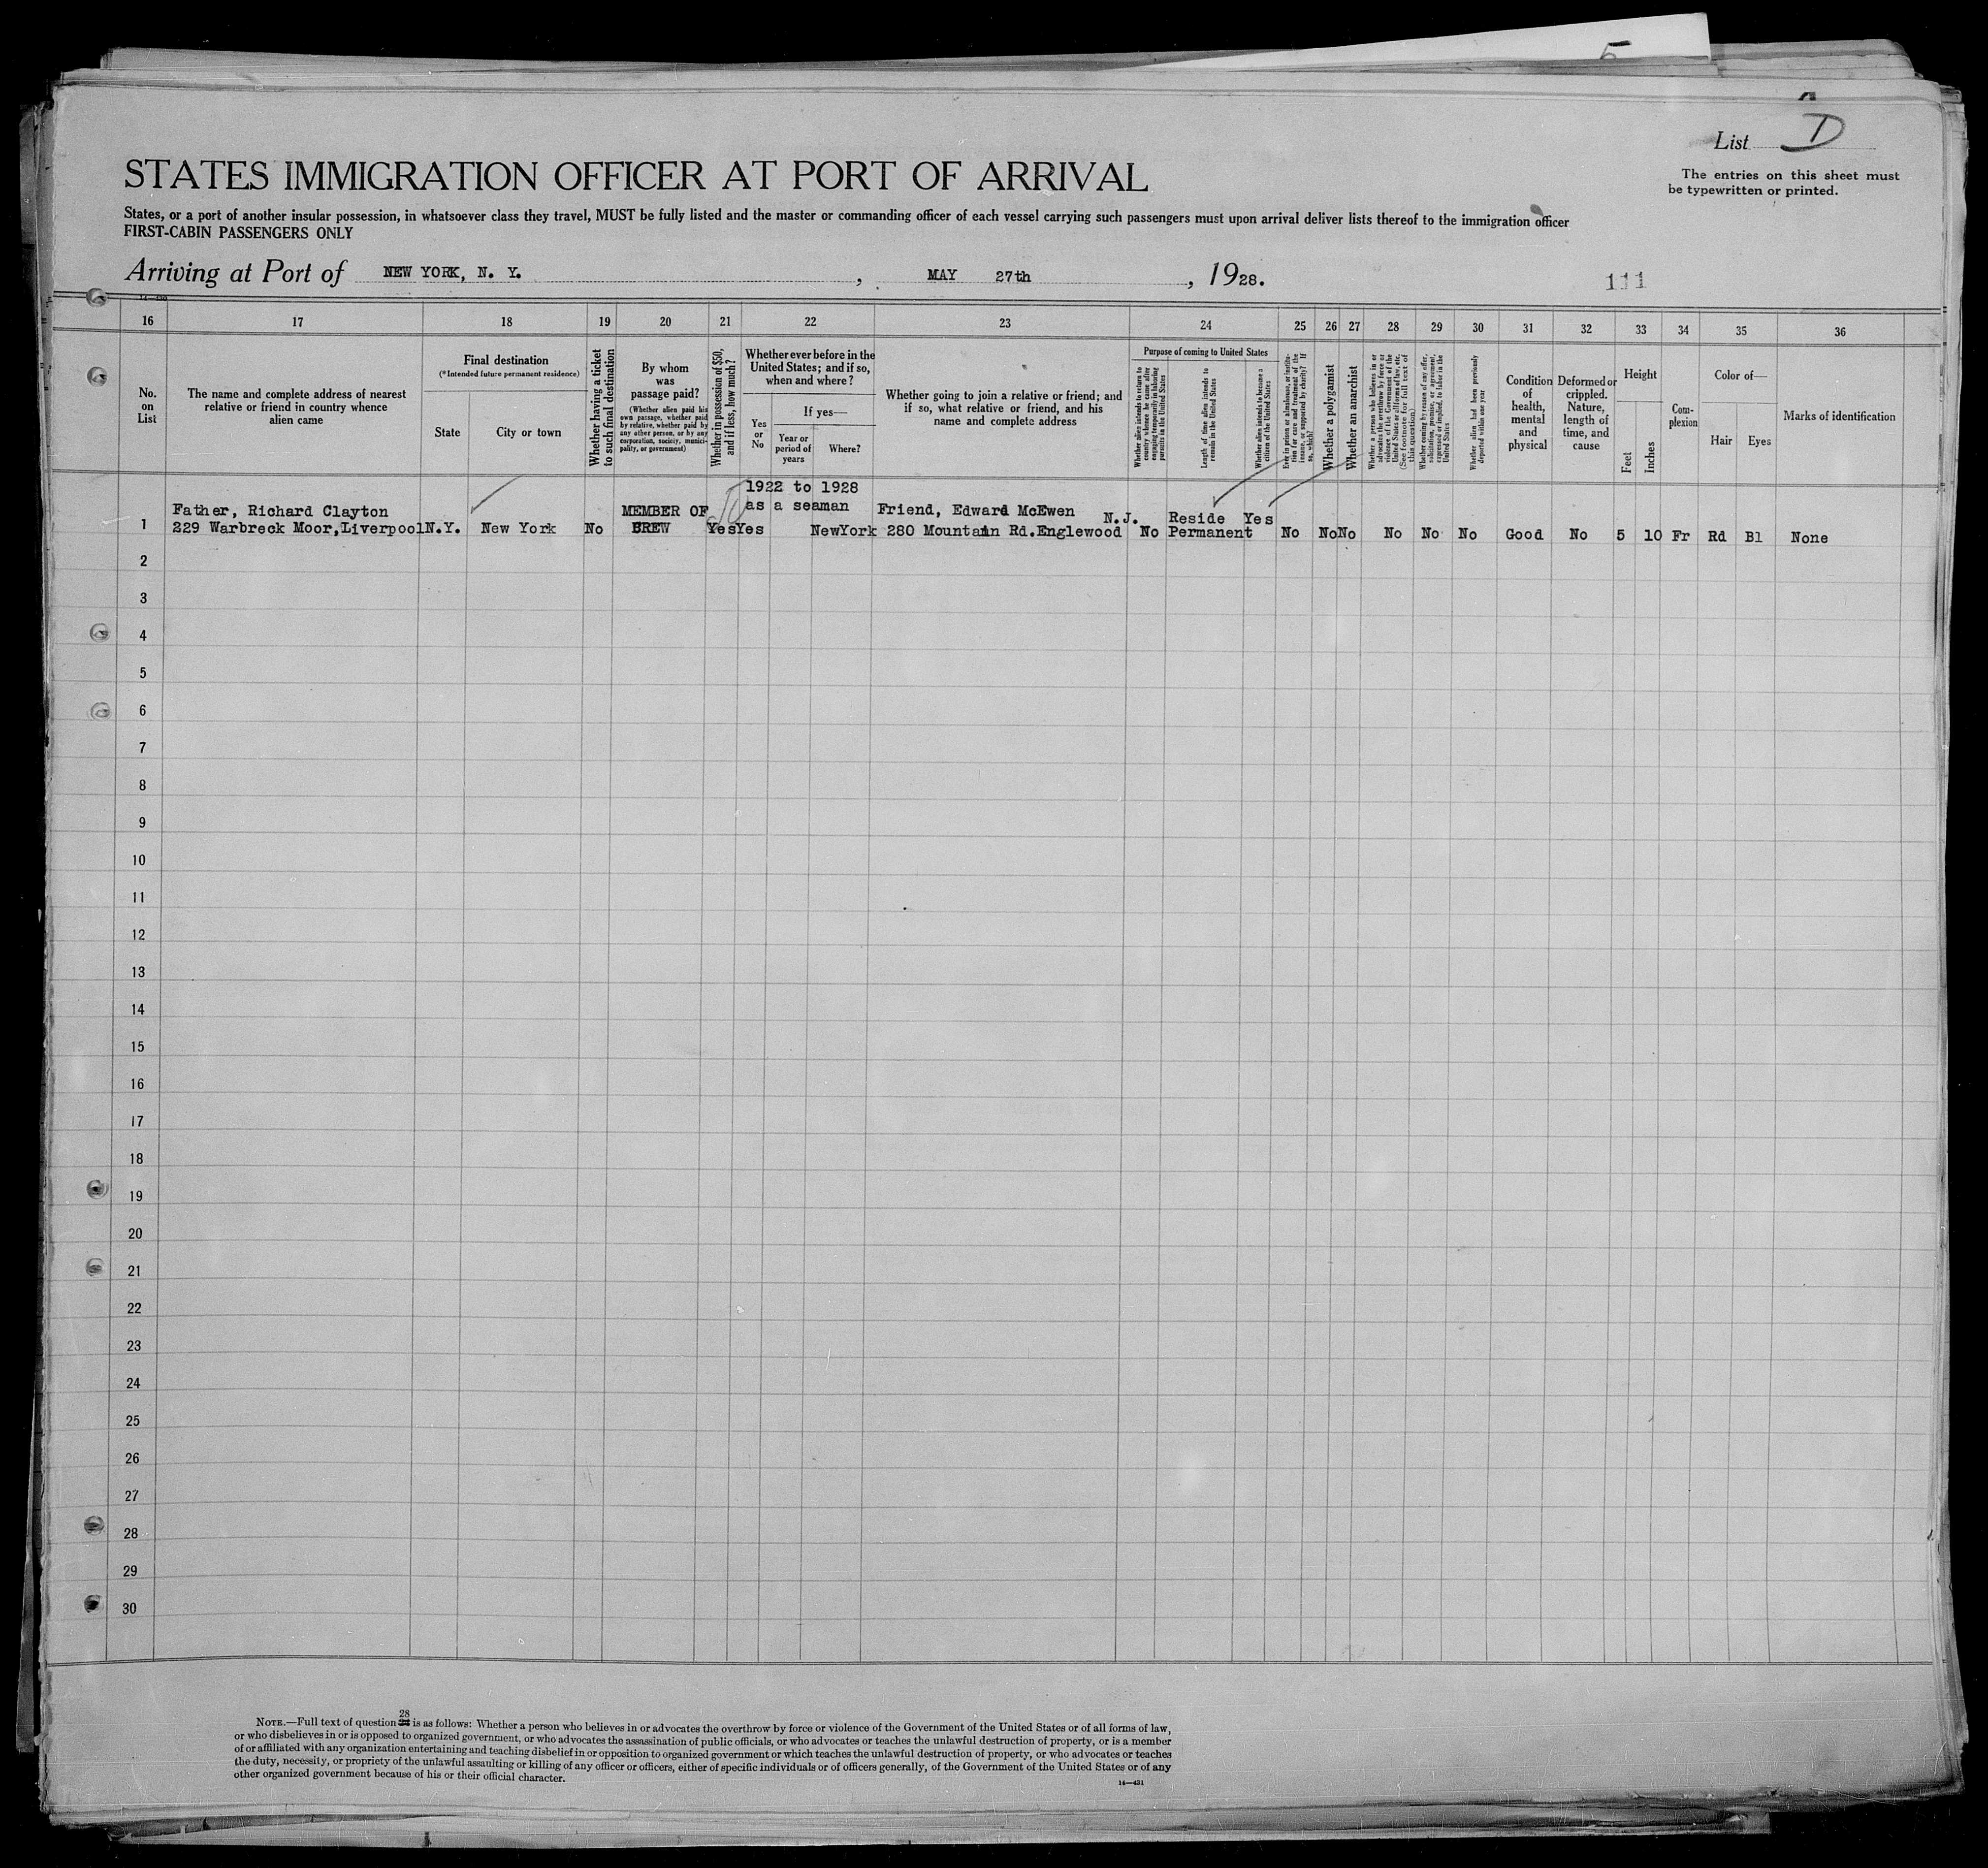 5
List D
The entries on this sheet must
be typewritten or printed.
STATES IMMIGRATION OFFICER AT PORT OF ARRIVAL
States, or a port of another insular possession, in whatsoever class they travel, MUST be fully listed and the master or commanding officer of each vessel carrying such passengers must upon arrival deliver lists thereof to the immigration officer
FIRST-CABIN PASSENGERS ONLY
Arriving at Port of NEW YORK, N. Y. , MAY 27th , 1928.
111
16 17 18 19 20 21 22 23 24 25 26 27 28 29 30 31 32 33 34 35 36
No.
on
List
The name and complete address of nearest
relative or friend in country whence
alien came
Final destination
(*Intended future permanent residence)
State
City or town
Whether having a ticket
to such final destination
By whom
was
passage paid?
(Whether alien paid his
own passage, whether paid
by relative, whether paid by
any other person, or by any
corporation, society, munici-
pality, or government)
Whether in possession of $50,
and if less, how much?
Whether ever before in the
United States; and if so,
when and where?
Yes
or
No
If yes—
Year or
period of
years
Where?
Whether going to join a relative or friend; and
if so, what relative or friend, and his
name and complete address
Purpose of coming to United States
Whether alien intends to return to
country whence he came after
engaging temporarily in laboring
pursuits in the United States
Length of time alien intends to
remain in the United States
Whether alien intends to become a
citizen of the United States
Ever in prison or almshouse, or institu-
tion for care and treatment of the
insane, or supported by charity? If
so, which?
Whether a polygamist
Whether an anarchist
Whether a person who believes in or
advocates the overthrow by force or
violence of the Government of the
United States or all forms of law, etc.
(See footnote for full text of
this question)
Whether coming by reason of any offer,
solicitation, promise, or agreement,
expressed or implied, to labor in the
United States
Whether alien had been previously
deported within one year
Condition
of
health,
mental
and
physical
Deformed or
crippled.
Nature,
length of
time, and
cause
Height
Feet
Inches
Com-
plexion
Color of—
Hair
Eyes
Marks of identification
1922 to 1928
Father, Richard Clayton MEMBER OF as a seaman Friend, Edward McEwen N.J. Reside Yes
1 229 Warbreck Moor,Liverpool N.Y. New York No CREW Yes Yes NewYork 280 Mountain Rd.Englewood No Permanent No No No No No No Good No 5 10 Fr Rd Bl None
2
3
4
5
6
7
8
9
10
11
12
13
14
15
16
17
18
19
20
21
22
23
24
25
26
27
28
29
30
28
NOTE.—Full text of question is as follows: Whether a person who believes in or advocates the overthrow by force or violence of the Government of the United States or of all forms of law,
or who disbelieves in or is opposed to organized government, or who advocates the assassination of public officials, or who advocates or teaches the unlawful destruction of property, or is a member
of or affiliated with any organization entertaining and teaching disbelief in or opposition to organized government or which teaches the unlawful destruction of property, or who advocates or teaches
the duty, necessity, or propriety of the unlawful assaulting or killing of any officer or officers, either of specific individuals or of officers generally, of the Government of the United States or of any
other organized government because of his or their official character.
14—431